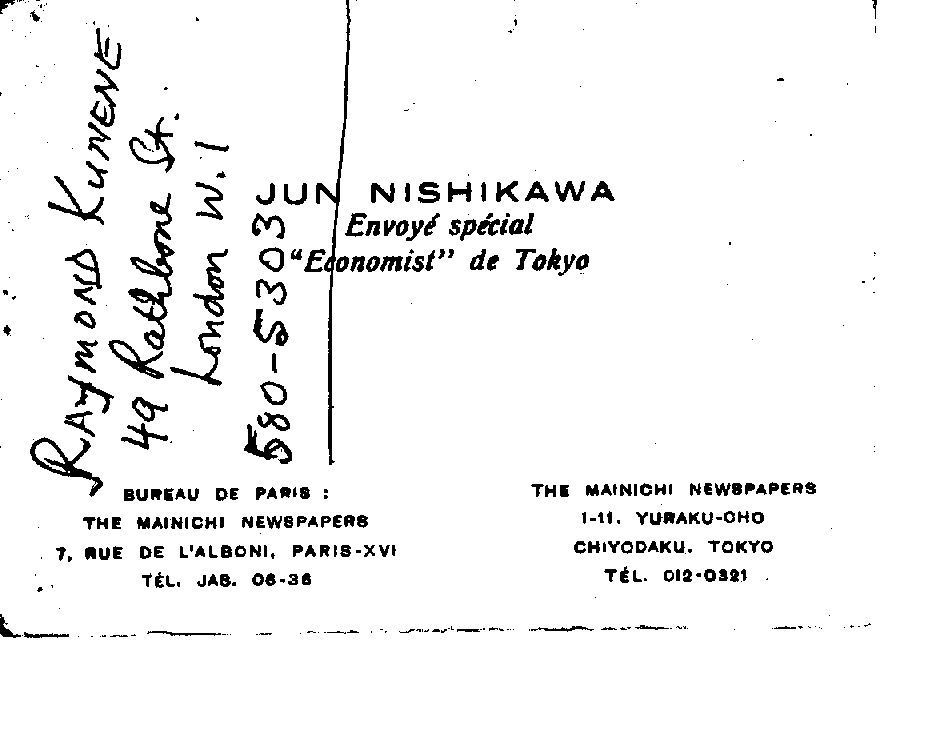 RAYMOND KUNENE
49 Rathbone St.
London W.1
580-5303
JUN NISHIKAWA
Envoyé spécial
“Economist” de Tokyo
BUREAU DE PARIS :
THE MAINICHI NEWSPAPERS
7, RUE DE L'ALBONI, PARIS-XVI
TÉL. JAB. 06-36
THE MAINICHI NEWSPAPERS
1-11, YURAKU-CHO
CHIYODAKU, TOKYO
TÉL. 012-0321